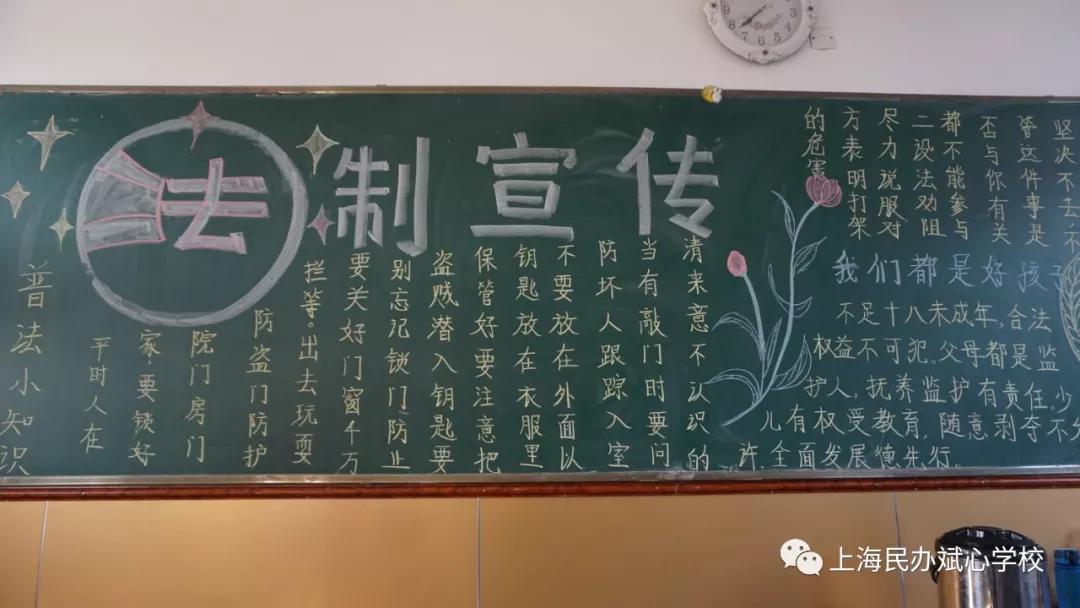 法制宣传
普法小知识
平时人在
家要锁好
院门房门
防盗门防护
拦等。出去玩耍
要关好门窗千万
别忘记锁门防止
盗贼潜入钥匙要
保管好要注意把
钥匙放在衣服里
不要放在外面以
防坏人跟踪入室
当有敲门时要问
清来意不认识的
坚决不去
管这件事是
否与你有关
都不能参与
二设法劝阻
尽力说服对
方表明打架
的危害
我们都是好孩子
不足十八未成年,合法
权益不可犯。父母都是监
护人,抚养监护有责任,少
儿有权受教育,随意剥夺不
许,全面发展德先行。
上海民办斌心学校